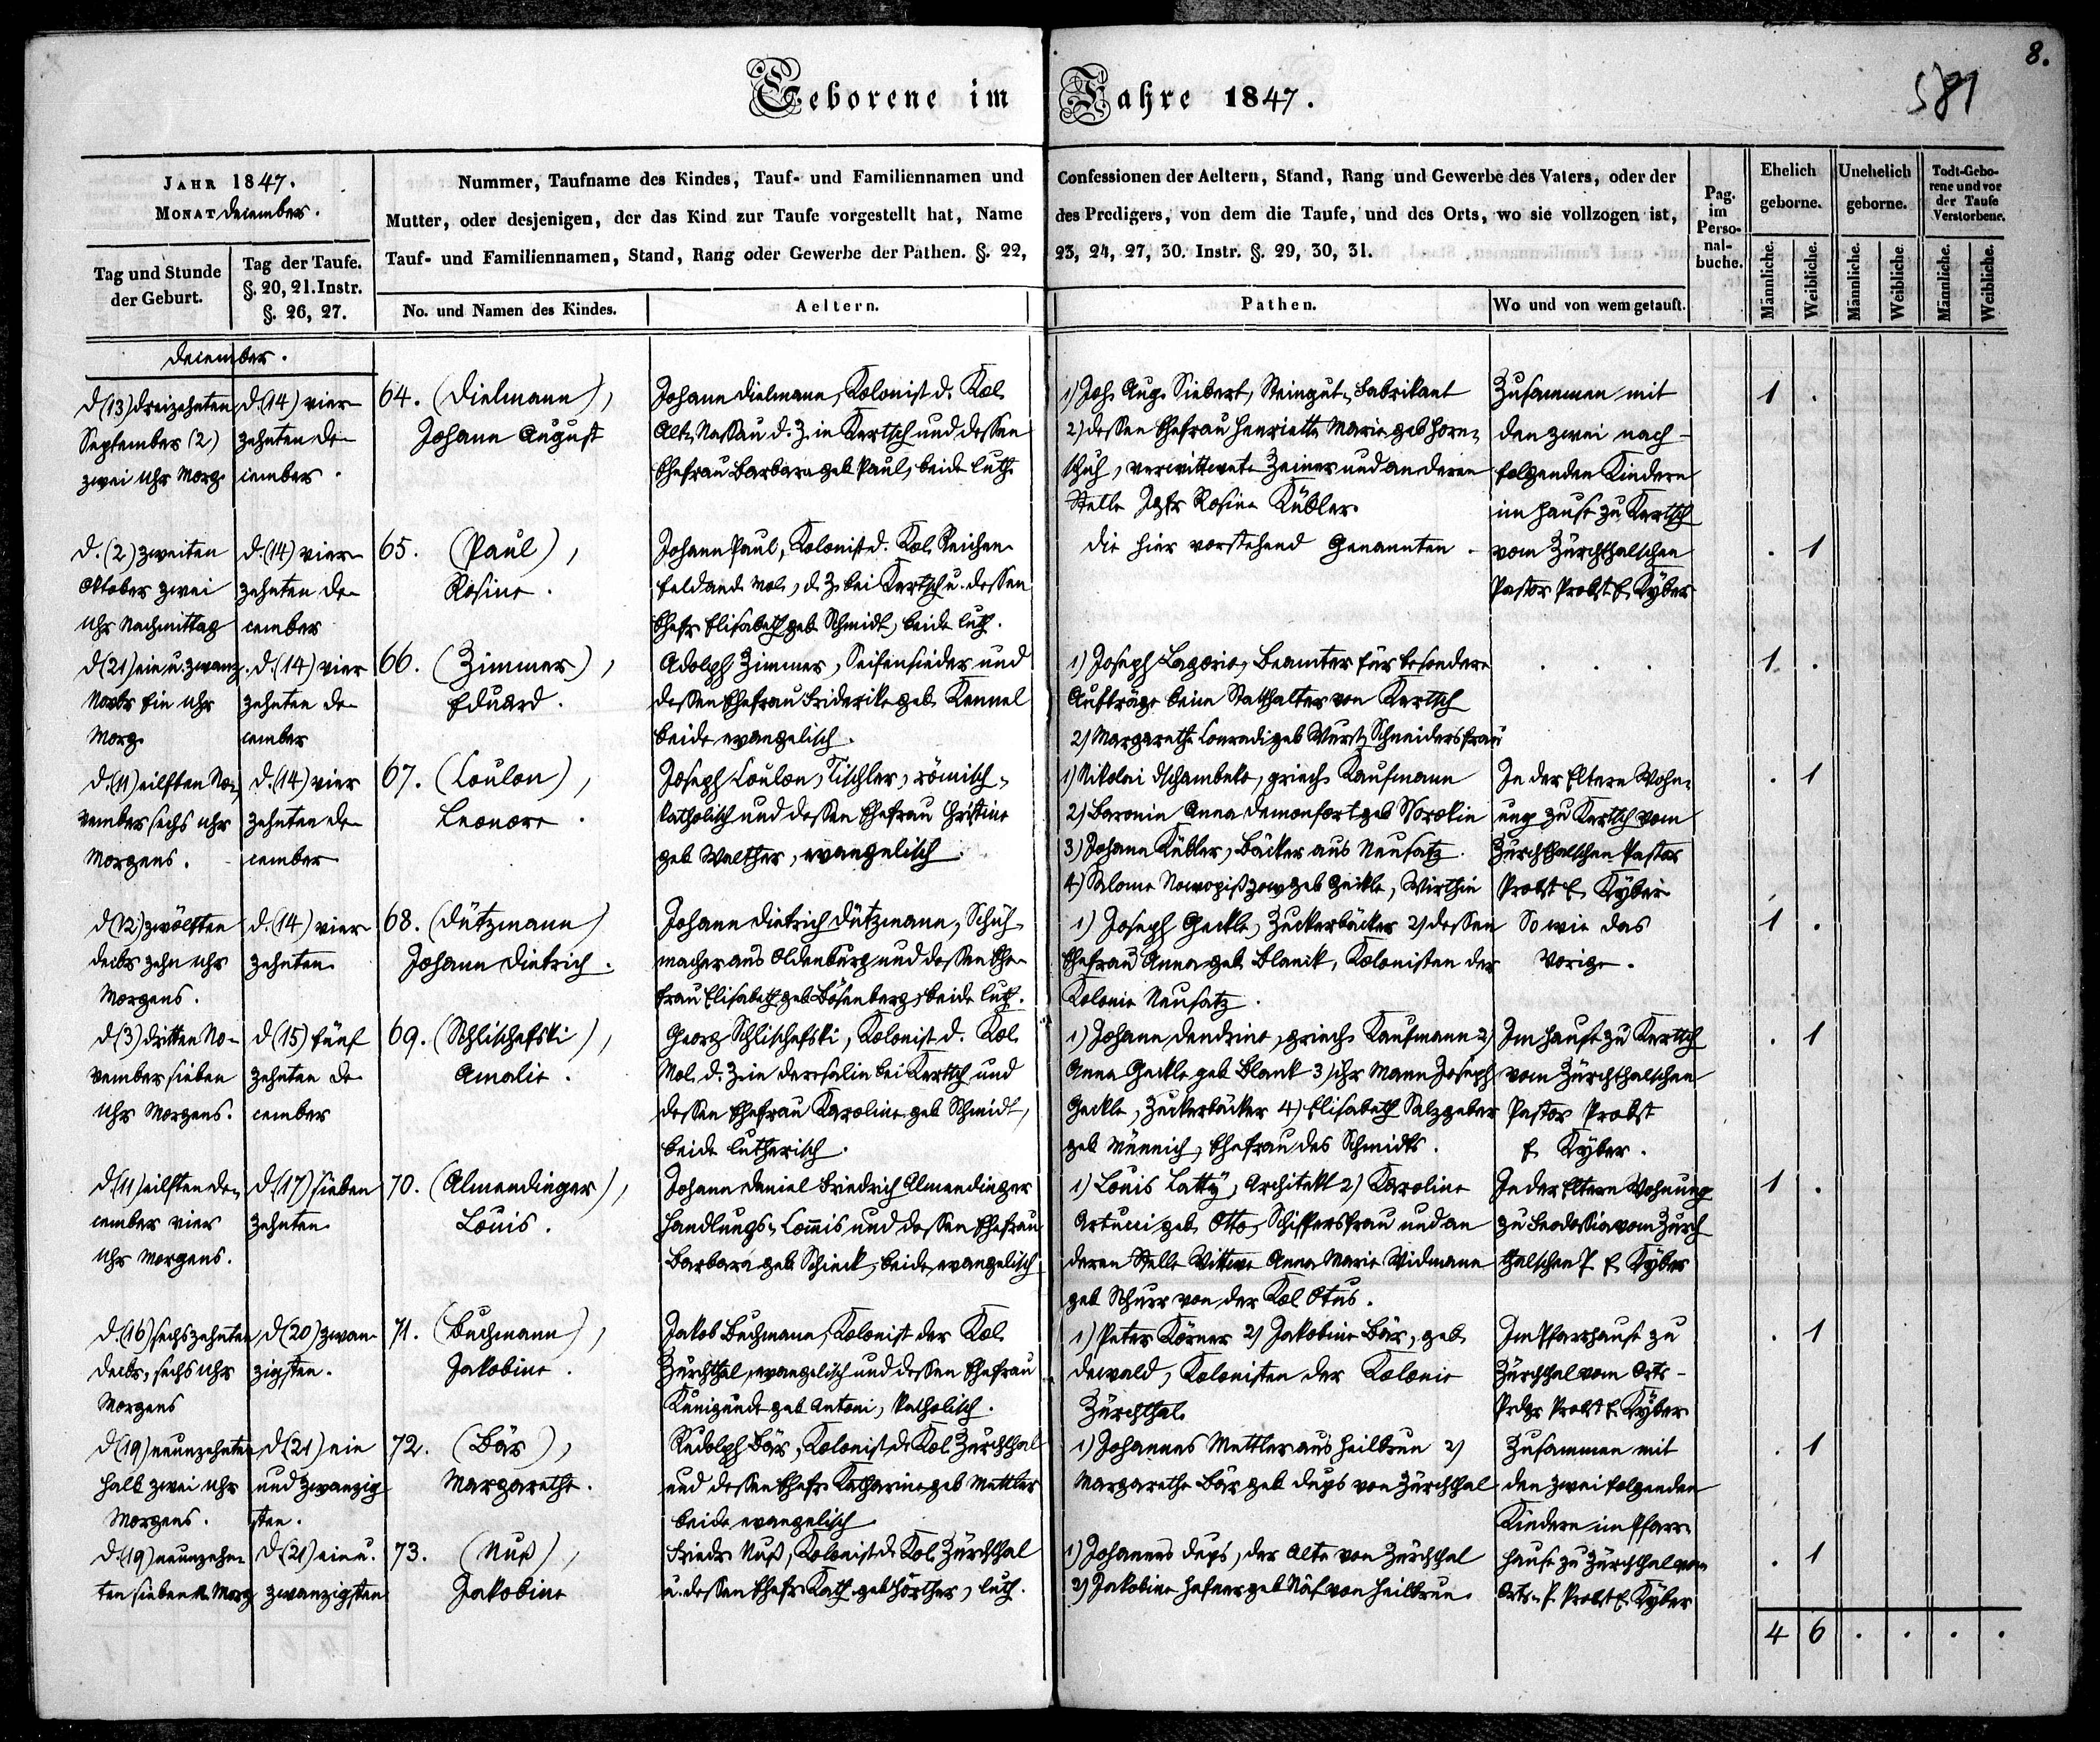 8.
581
Geborene im Jahre 1847.
JAHR 1847.
MONAT December.
Tag und Stunde
der Geburt.
Tag der Taufe.
§. 20, 21. Instr.
§. 26, 27.
Nummer, Taufname des Kindes, Tauf- und Familiennamen und
Mutter, oder desjenigen, der das Kind zur Taufe vorgestellt hat, Name
Tauf- und Familiennamen, Stand, Rang oder Gewerbe der Pathen. §. 22,
No. und Namen des Kindes.
Aeltern.
Confessionen der Aeltern, Stand, Rang und Gewerbe des Vaters, oder der
des Predigers, von dem die Taufe, und des Orts, wo sie vollzogen ist,
23, 24, 27, 30. Instr. §. 29, 30, 31.
Pathen.
Wo und von wem getauft.
Pag.
im
Perso-
nal-
buche.
Ehelich
geborne.
Unehelich
geborne.
Todt-Gebo-
rene und vor
der Taufe
Verstorbene.
Männliche.
Weibliche.
Männliche.
Weibliche.
Männliche.
Weibliche.
December.
d. (13) dreizehnten
September (2)
zwei Uhr Morg.
d. (14) vier-
zehnten De-
cember.
64. (Dielmann),
Johann August
Johann Dielmann, Kolonist d. Kol.
Alt-Nassau d. Z. in Kertsch und dessen
Ehefrau Barbara geb. Paul, beide luth.
1) Joh. Aug. Siebert, Steingut-Fabrikant
2) dessen Ehefrau Henriette Marie geb. Horn-
schuh, verwittwete Zeiner und an deren
Stelle Jgfr. Rosine Kübler.
Zusammen mit
den zwei nach-
folgenden Kindern
im Hause zu Kertsch
vom Zürchthalschen
Pastor Probst E. Kyber
1 .
d. (2) zweiten
Oktober zwei
Uhr Nachmittag
d. (14) vier-
zehnten De-
cember
65. (Paul),
Rosine.
Johann Paul, Kolonist d. Kol. Reichen-
feld an d. Mol., d. Z. bei Kertsch u. dessen
Ehefr. Elisabeth geb. Schmidt, beide luth.
Die hier vorstehend Genannten.
. 1
d. (21) ein u. zwanz.
Novbr. Ein Uhr
Morg.
d. (14) vier-
zehnten De-
cember
66. (Zimmer),
Eduard.
Adolph Zimmer, Seifensieder und
dessen Ehefrau Friderike geb. Kennel
beide evangelisch.
1) Joseph Lagorio, Beamter für besondere
Aufträge beim Statthalter von Kertsch
2) Margarethe Conradi geb. Wurst, Schneidersfrau
. . .
1 .
d. (11) eilften No-
vember sechs Uhr
Morgens.
d. (14) vier
zehnten De-
cember
67. (Coulon),
Leonore.
Joseph Coulon, Tischler, römisch-
katholisch und dessen Ehefrau Christine
geb. Walther, evangelisch.
1) Nikolai Dschambeko, griech. Kaufmann
2) Baronin Anna Demonfort geb.
3) Johann Kübler, Bäcker aus Neusatz.
4) Salome geb. Geikle, Wirthin
In der Eltern Wohn-
ung zu Kertsch vom
Zürchthalschen Pastor
Probst E. Kyber
. 1
d. (12) zwölften
Decbr. zehn Uhr
Morgens.
d. (14) vier-
zehnten
68. (Dützmann)
Johann Dietrich.
Johann Dietrich Dützmann, Schuh-
macher aus Oldenburg und dessen Ehe-
frau Elisabeth geb. Bösenberg, beide luth.
1) Joseph Geckle, Zuckerbäcker 2) dessen
Ehefrau Anna geb. Blank, Kolonisten der
Kolonie Neusatz.
So wie das
Vorige.
1 .
d. (3) dritten No-
vember sieben
Uhr Morgens.
d. (15) fünf
zehnten De-
cember
69. (Schlischefski),
Amalie.
Georg Schlischefski, Kolonist d. Kol.
Mol. d. Z. in bei Kertsch und
dessen Ehefrau Karoline geb. Schmidt,
beide lutherisch.
1) Johann Dendrino, griech. Kaufmann 2)
Anna Geckle geb. Blank 3) ihr Mann Joseph
Geckle, Zuckerbäcker 4) Elisabeth Salzgeber
geb. Münnich, Ehefrau des Schmidts.
Im Hause zu Kertsch
vom Zürchthalschen
Pastor Probst
E. Kyber.
. 1
d. (11) eilften De-
cember vier
Uhr Morgens.
d. (17) sieben
zehnten
70. (Almendinger),
Louis.
Johann Daniel Friedrich Almendinger
Handlungs-Commis und dessen Ehefrau
Barbara geb. Schieck, beide evangelisch
1) Louis Latty, Architekt 2) Karoline
Artucci geb. Otto, Schiffersfrau und an
deren Stelle Wittwe Anna Marie Widmann
geb. Schurr von der Kol. Otus.
In der Eltern Wohnung
zu Feodossia vom Zürch-
thalschen P. E. Kyber
1 .
d. (16) sechszehnten
Decbr. sechs Uhr
Morgens
d. (20) zwan-
zigsten.
71. (Buchmann),
Jakobine.
Jakob Buchmann, Kolonist der Kol.
Zürchthal, evangelisch und dessen Ehefrau
Kunigunde geb. Antoni, katholisch.
1) Peter Körner 2) Jakobine Bär, geb.
Dewald, Kolonisten der Kolonie
Zürchthal.
Im Pfarrhause zu
Zürchthal vom Orts-
Prdgr. Probst E. Kyber
. 1
d. (19) neunzehnten
halb zwei Uhr
Morgens.
d. (21) ein
und zwanzig
sten.
72. (Bär),
Margarethe.
Rudolph Bär, Kolonist d. Kol. Zürchthal
und dessen Ehefr. Katharine geb. Mettler
beide evangelisch.
1) Johannes Mettler aus Heilbrun 2)
Margarethe Bär geb. Dups von Zürchthal
Zusammen mit
den zwei folgenden
Kindern im Pfarr-
hause zu Zürchthal vom
Orts-P. Probst E. Kyber
. 1
d. (19) neunzehn-
ten sieben U. Morg.
d. (21) ein u.
zwanzigsten
73. (Nuß),
Jakobine
Friedr. Nuß, Kolonist d. Kol. Zürchthal
u. dessen Ehefr. Kath. geb. Hörther, luth.
1) Johannes Dups, der Alte von Zürchthal
2) Jakobine Hefner geb. Näf von Heilbrun.
. 1
4 6 . . . .